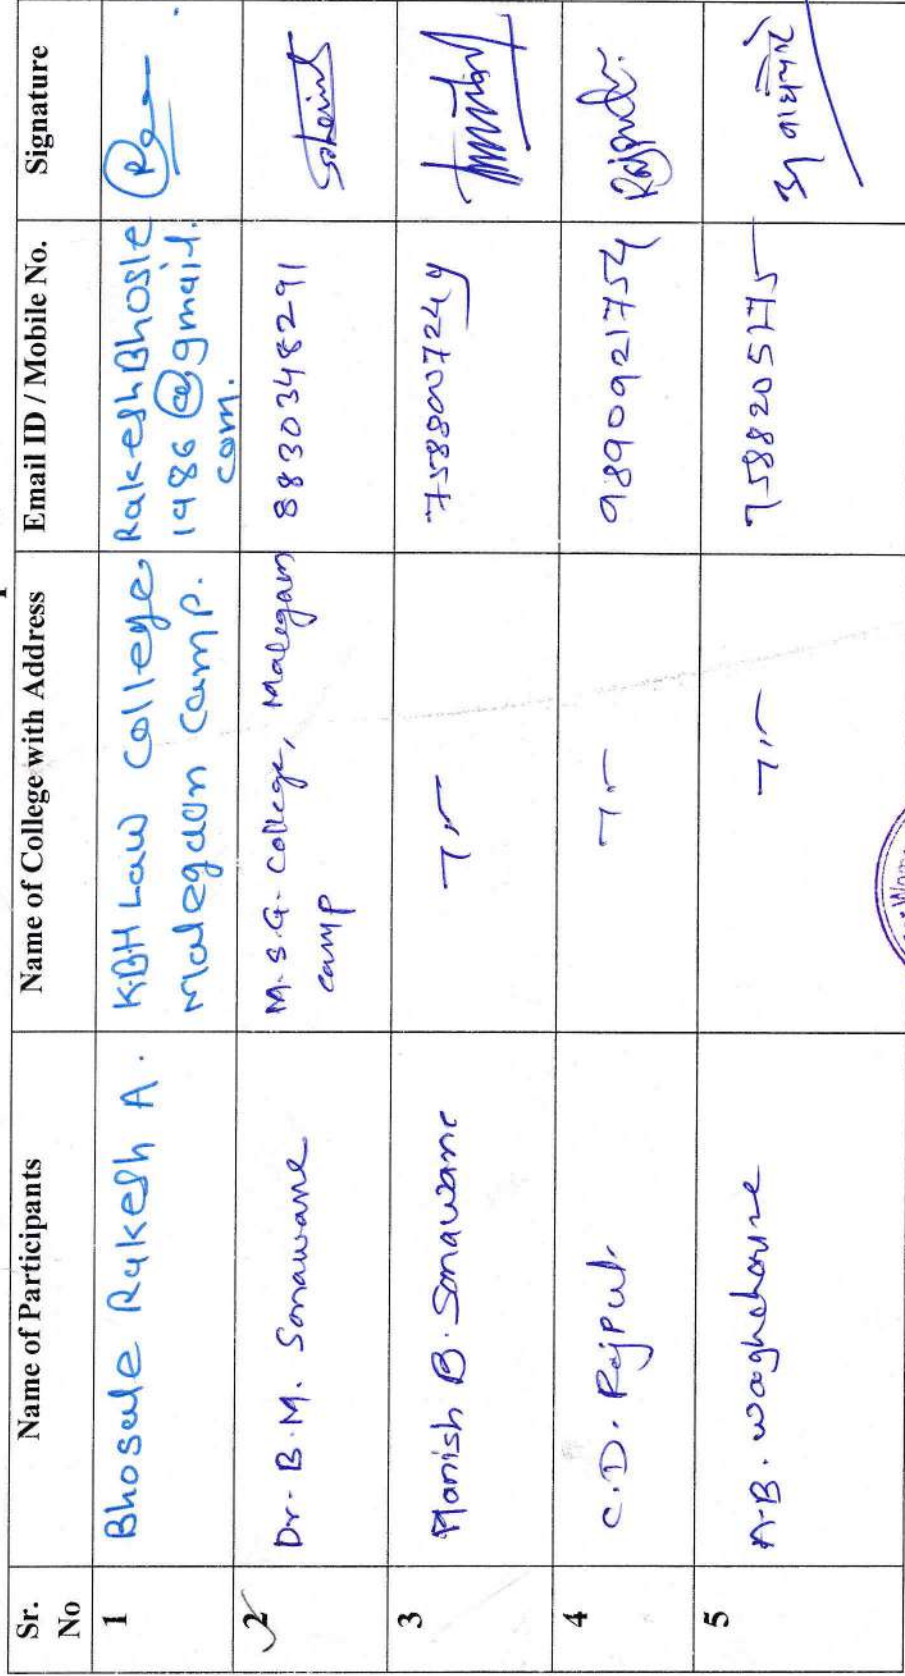 Sr. No Name of Participants Name of College with Address Email ID / Mobile No. Signature
1 Bhosale Rakesh A. KBH Law College, RakeshBhosle
Malegaon Camp. 1986@gmail.
com.
2 Dr. B. M. Sonawane M.S.G. College, Malegaon 8830348291
camp
3 Manish B. Sonawane —〃—
4 C.D. Rajput. —〃— 9890921754 Rajput
5 A.B. —〃— 7588205175